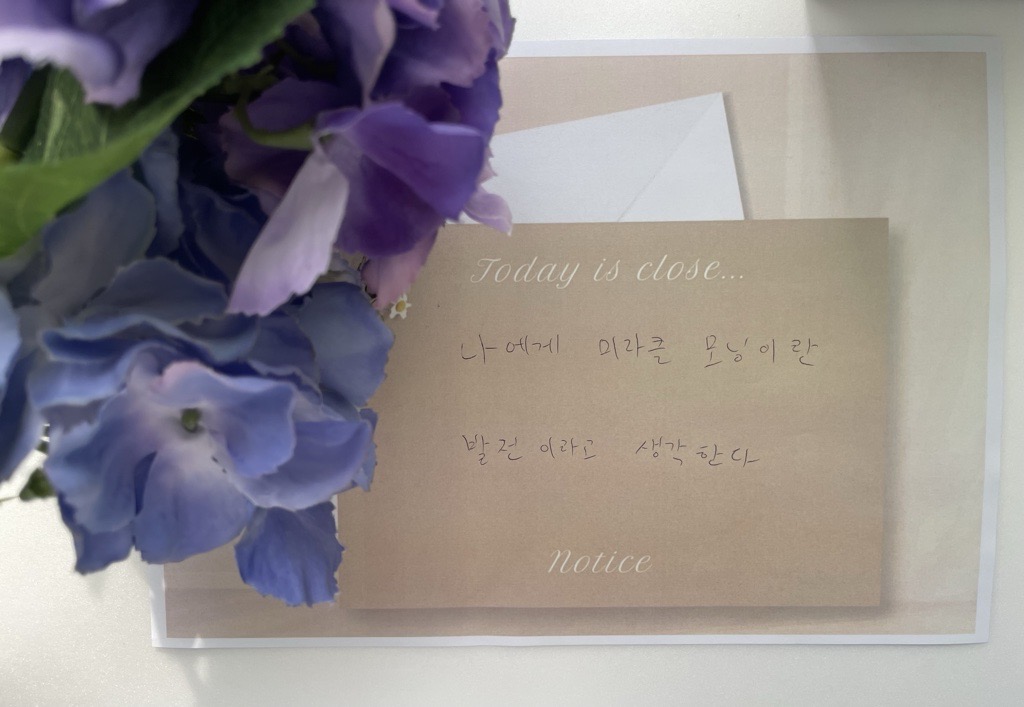 Today is close...
나에게 미라클 모닝이란
발전이라고 생각한다
Notice